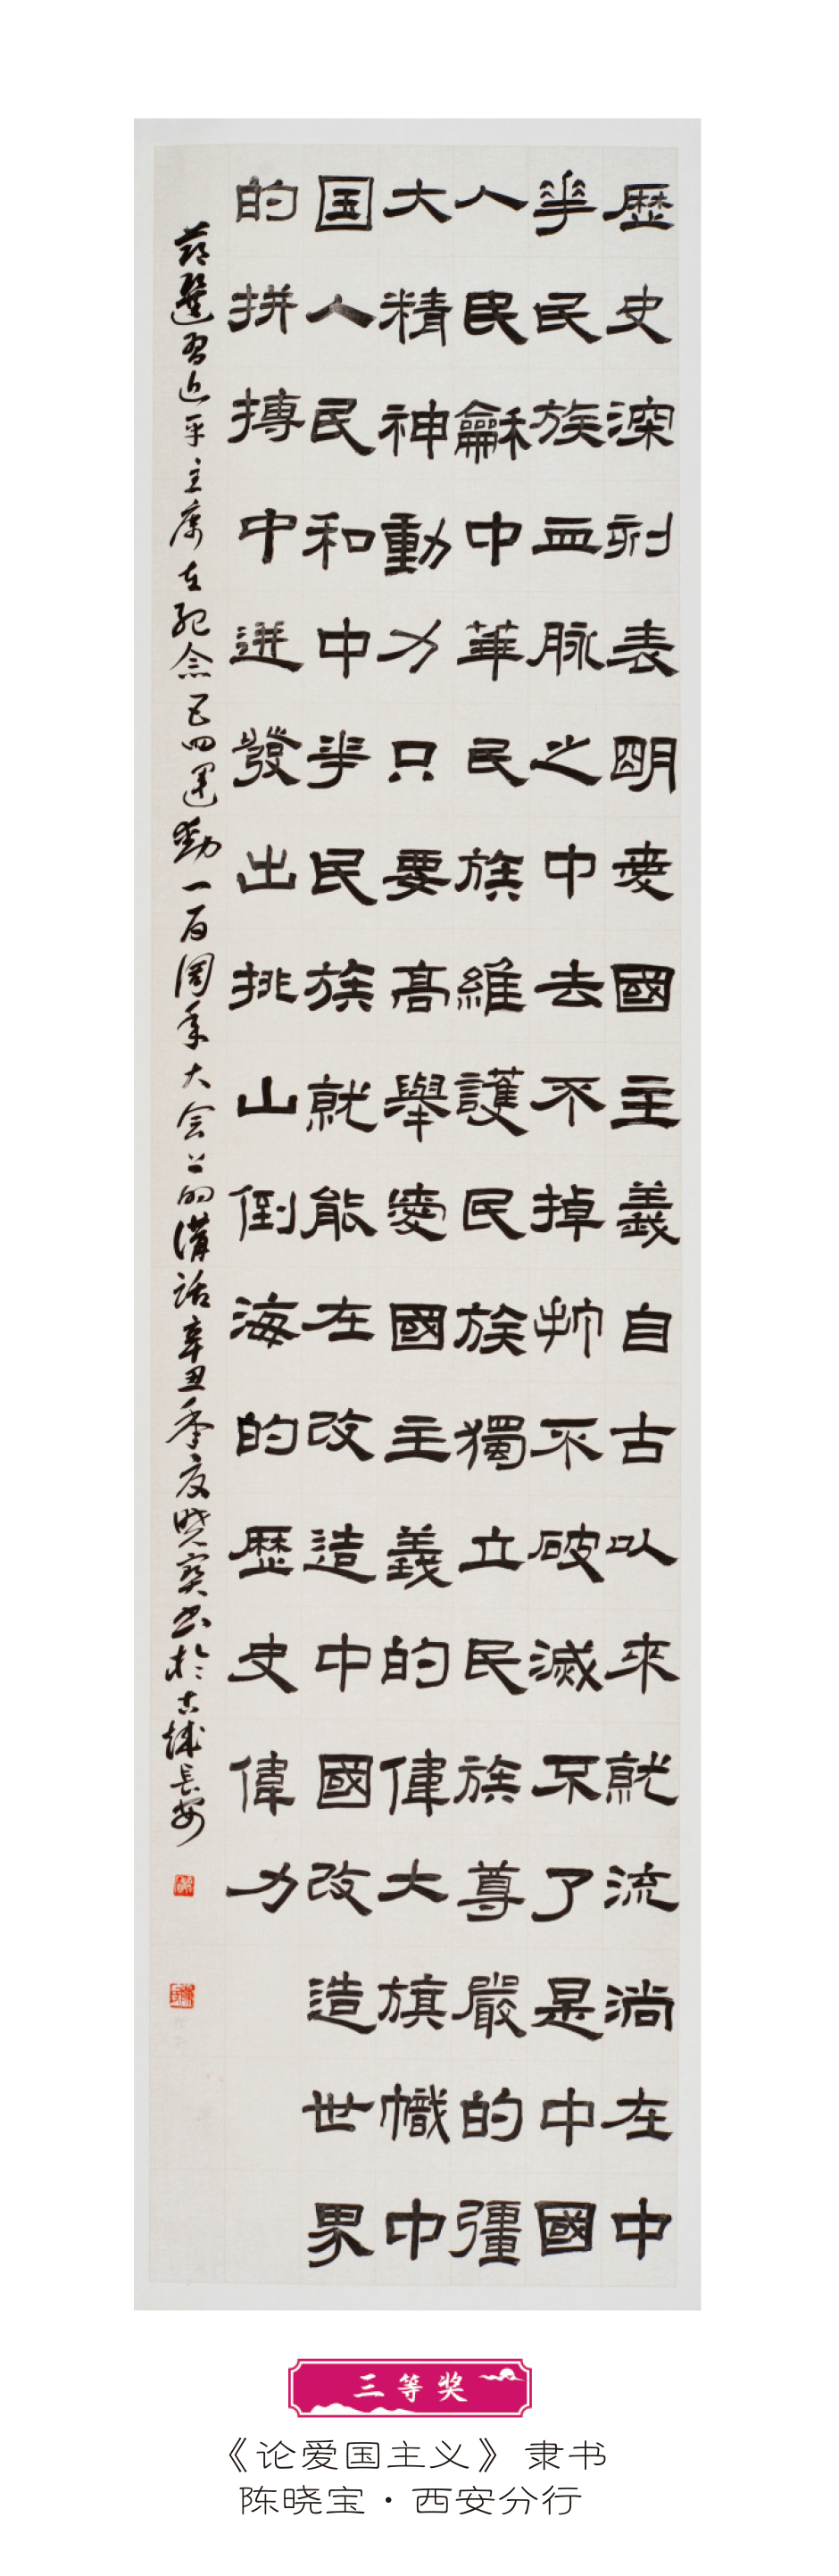 歷史深刻表明愛國主義自古以來就流淌在中
華民族血脉之中去不掉打不破滅不了是中國
人民龢中華民族維護民族獨立民族尊嚴的彊
大精神動力只要高舉愛國主義的偉大旗幟中
国人民和中华民族就能在改造中國改造世界
的拼搏中迸發出排山倒海的歷史偉力
節選習近平主席在紀念五四運動一百周年大会上的講話辛丑季夏曉寶書於古城長安
三等奖
《论爱国主义》隶书
陈晓宝·西安分行